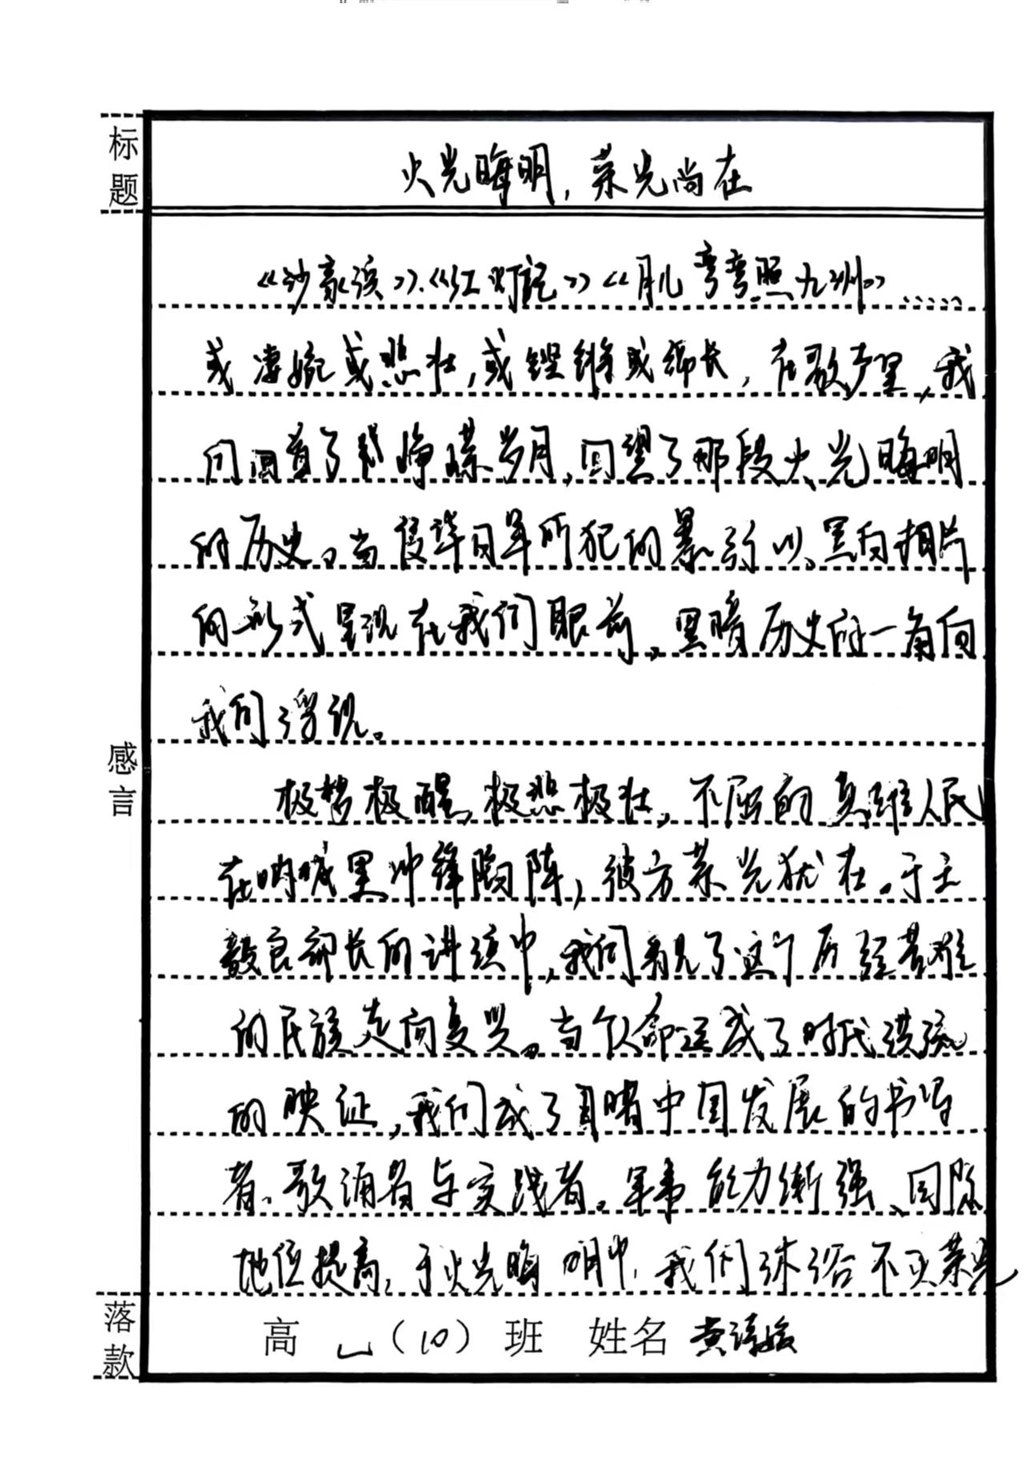 标题
火光晦明，荣光尚在
《沙家浜》、《红灯记》《月儿弯弯照九州》……
或凄婉或悲壮，或铿锵或绵长，在歌声里，我
们回首了那峥嵘岁月，回望了那段火光晦明
的历史。当侵华日军所犯的暴行以黑白相片
的形式呈现在我们眼前，黑暗历史的一角向
我们浮现。
感言
极梦极醒，极悲极壮，不屈的英雄人民
在呐喊里冲锋陷阵，彼方荣光犹在。于王
毅良部长的讲演中，我们看见了这个历经苦难
的民族走向复兴。当个人命运成了时代洪流
的映证，我们成了目睹中国发展的书写
者、歌诵者与实践者。军事能力渐强、国际
地位提高，于火光晦明中，我们沐浴不灭荣光
落款
高（10）班 姓名 黄